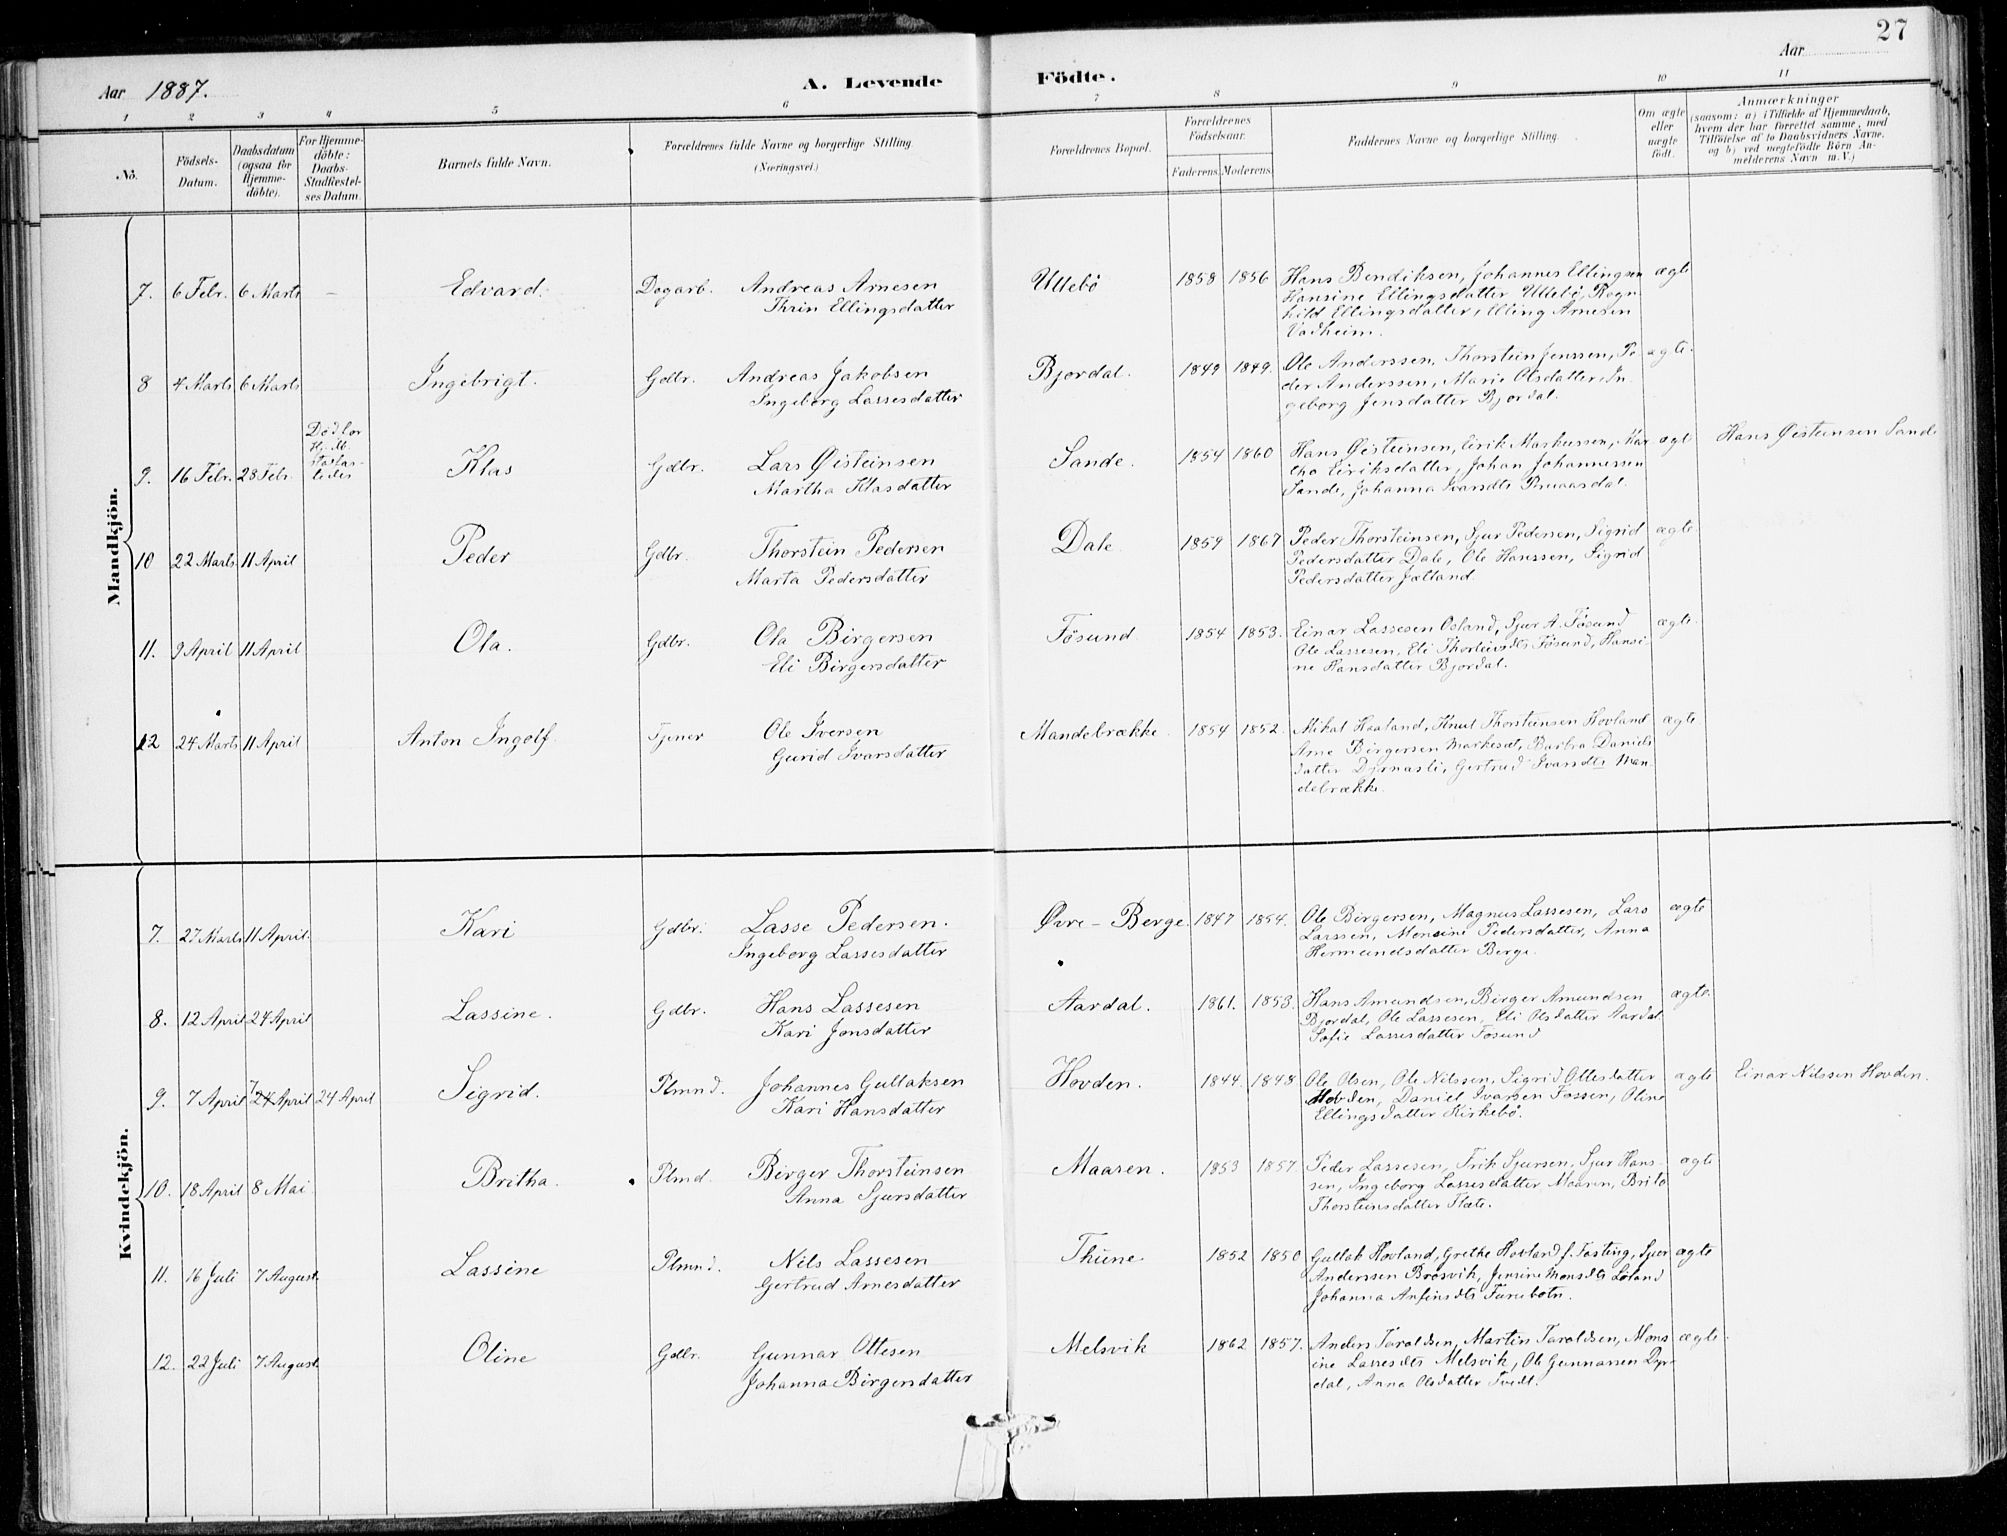 27
Aar 1887.
A. Levende Födte.
Aar
1 2 3 4 5 6 7 8 9 10 11
No.
Födsels-Datum.
Daabsdatum (ogsaa for Hjemme-döbte).
For Hjemme-döbte: Daabs-Stadfæstel-ses Datum.
Barnets fulde Navn.
Forældrenes fulde Navne og borgerlige Stilling. (Næringsvei.)
Forældrenes Bopæl.
Forældrenes Födselsaar.
Faderens. Moderens.
Faddernes Navne og borgerlige Stilling.
Om ægte eller uægte födt.
Anmærkninger
(saasom: a) i Tilfælde af Hjemmedaab, hvem der har forrettet samme, med Tilföielse af to Daabsvidners Navne, og b) ved uægtefödte Börn Anmelderens Navn m. V.)
Mandkjön.
7. 6 Febr. 6 Marts — Edvard. Dagarb. Andreas Arnesen
Thrin Ellingsdatter
Uttebø 1858 1856 Hans Bendiksen, Johannes Ellingsen ægte
Hansine Ellingsdatter Uttebø, Ragn
hild Ellingsdatter, Elling Arnesen
Vadheim.
8 4 Marts 6 Marts Ingebrigt. Gdbr. Andreas Jakobsen
Ingeborg Lassesdatter
Bjordal. 1849 1849. Ole Anderssen, Thorstein Jenssen, Pe- ægte.
der Anderssen, Marie Olsdatter, In-
geborg Jensdatter Bjordal.
9. 16 Febr. 28 Febr. Død før Klas Gdbr. Lars Øisteinsen
Martha Klasdatter
Sande. 1854 1860 Hans Øisteinsen, Eirik Markussen, Mar ægte Hans Øisteinsen Sande
tha Eiriksdatter, Johan Johannessen
Sande, Johanna Ivarsdtr
10 22 Marts 11 April Peder Gdbr. Thorstein Pedersen
Marta Pedersdatter
Dale 1859 1867 Peder Thorsteinsen, Sjur Pedersen, Sigrid ægte.
Pedersdatter Dale, Ole Hanssen, Sigrid
Pedersdatter Jøtland.
11. 9 April 11 April Ola. Gdbr. Ola Birgersen
Eli Birgersdatter
Tøsund 1854 1853. Einar Lassesen Osland, Sjur A. Tøsund ægte.
Ole Lassesen, Eli Thorsteinsdtr Tøsund, Hansi
ne Hansdatter Bjordal.
12 24 Marts 11 April Anton Ingolf Tjener Ole Iversen
Gurid Ivarsdatter
Mandebrække. 1854 1852. Mikal Haaland, Knut Thorsteinsen Hovland ægte
Arne Birgersen Markeset, Barbra Daniels
datter, Gertrud Ivarsdtr Man-
debrække.
Kvindekjön.
7. 27 Marts 11 April. Kari Gdbr. Lasse Pedersen.
Ingeborg Lassesdatter
Øvre - Berge 1847 1854. Ole Birgersen, Magnus Lassesen, Lars ægte
Larssen, Monsine Pedersdatter, Anna
Hermundsdatter Berge.
8. 12 April 24 April Lassine. Gdbr. Hans Lassesen
Kari Jonsdatter
Aardal. 1861. 1853. Hans Amundsen, Birger Amundsen ægte.
Bjordal, Ole Lassesen, Eli Olsdatter Aardal
Sofie Lassesdatter Tøsund
9. 7 April 24 April 24 April Sigrid. Plmnd. Johannes Gullaksen
Kari Hansdatter
Hovden. 1844. 1848. Ole Olsen, Ole Nilssen, Sigrid Ottesdatter ægte Einar Nilssen Hovden.
Hovden, Daniel Ivarsen Fossen, Oline
Ellingsdatter Kirkebø.
10. 18 April 8 Mai. Britha. Plmd. Birger Thorsteinsen
Anna Sjursdatter
Maaren. 1853 1857. Peder Lassesen, Erik Sjursen, Sjur Hans- ægte
sen, Ingeborg Lassesdatter Maaren, Brita
Thorsteinsdatter Flete.
11. 16 Juli 7 August. Lassine Plmnd. Nils Lassesen
Gertrud Arnesdatter
Thune 1852 1850 Gullak Hovland, Grethe Hovland f. Fasting, Sjur ægte
Anderssen Brosvik, Jensine Monsdtr Løland
Johanna Anfinsdtr Furebotn.
12. 22 Juli 7 August Oline Gdbr. Gunnar Ottesen
Johanna Birgersdatter
Melsvik 1862 1857. Anders Taraldsen, Martin Taraldsen, Mons ægte.
ine Lassesdtr Melsvik, Ole Gunnarsen Dyr-
dal, Anna Olsdatter Tvedt.